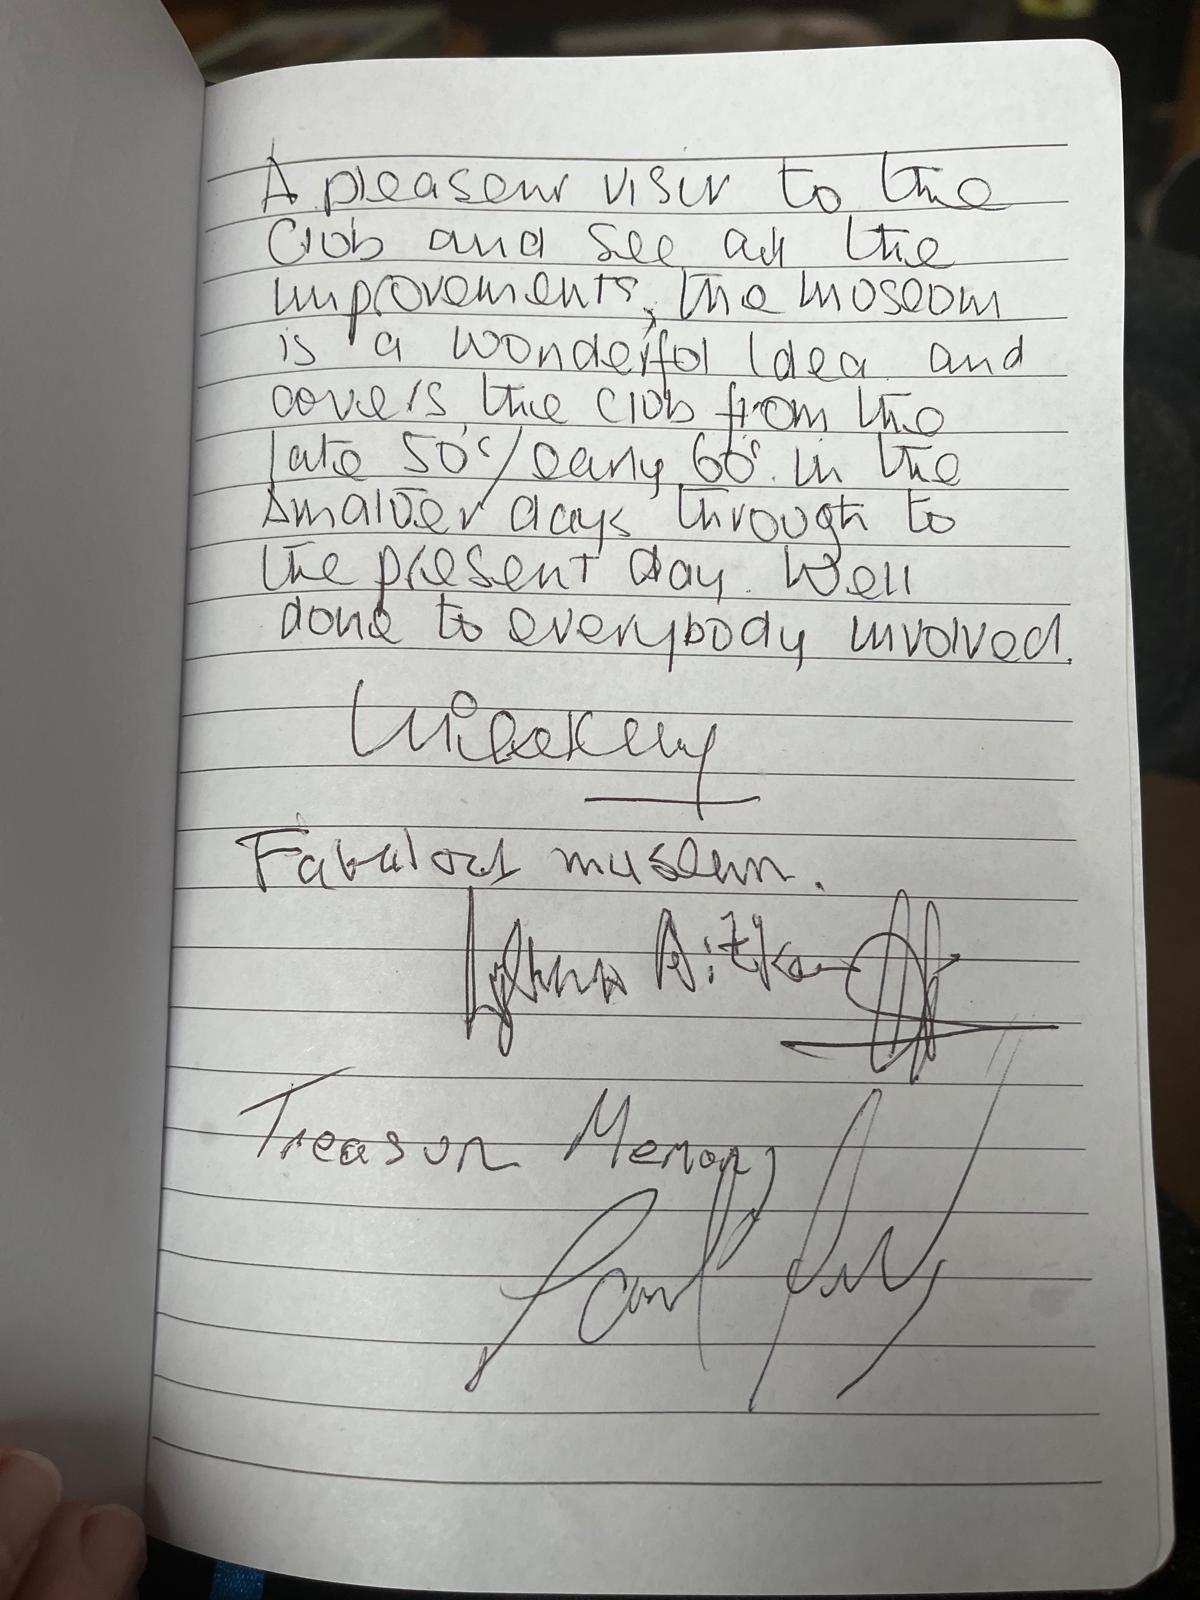 A pleasent visit to the
Club and see all the
improvements, the museum
is a wonderful Idea and
covers the club from the
late 50's/early 60's in the
Amateur days through to
the present day. Well
done to everybody involved.
Mike Kelly
Fabulous museum.
Aitken
Treason Memory
Paul